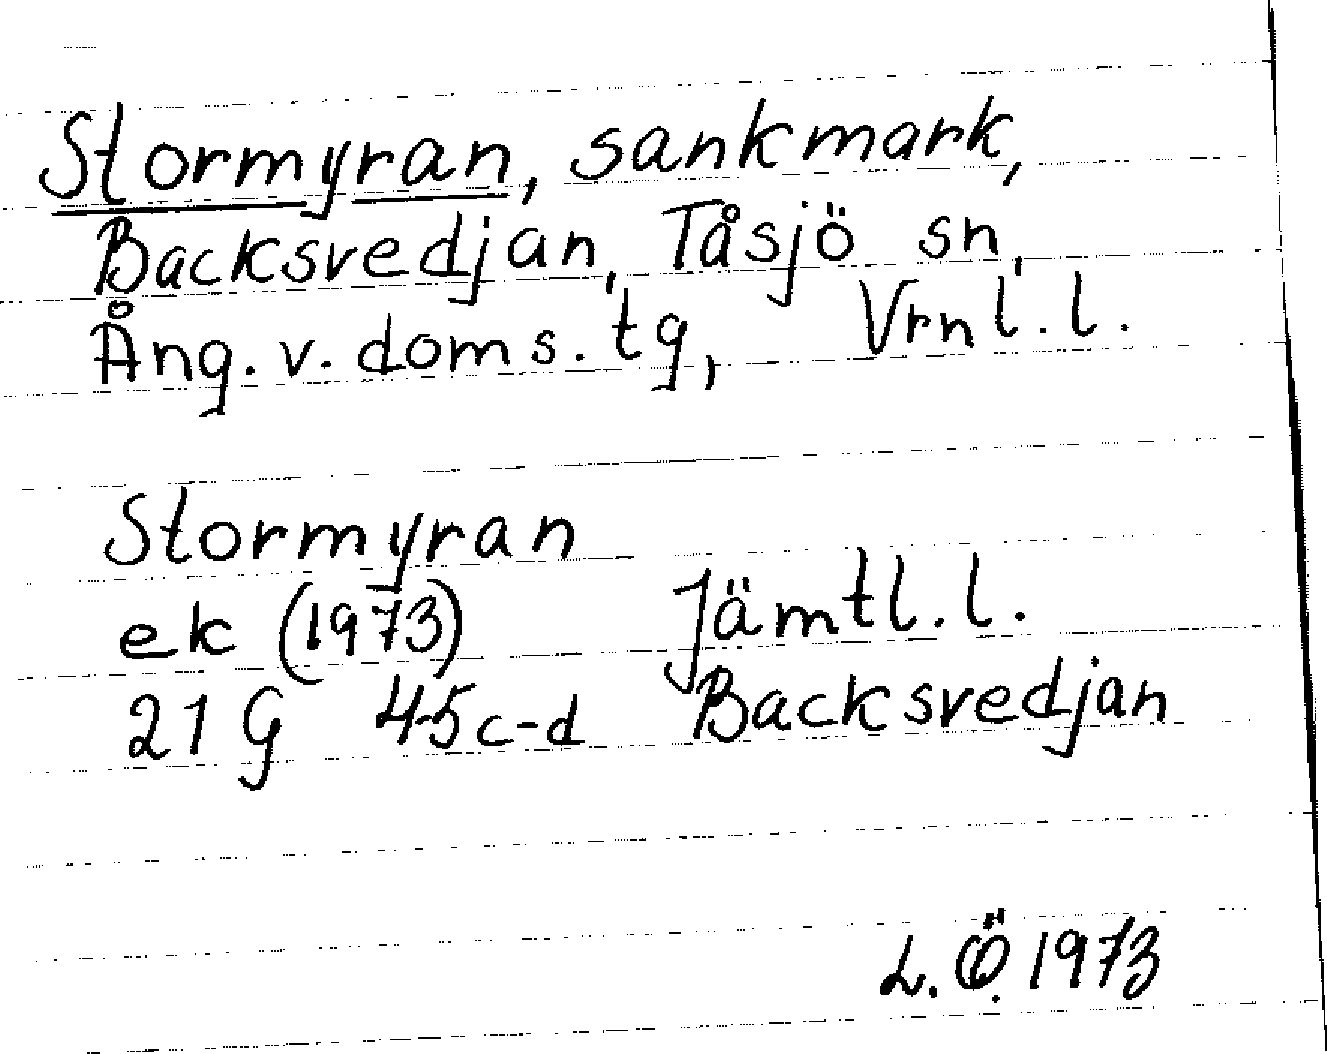 Stormyran, sankmark,
Backsvedjan, Tåsjö sn,
Ång. v. doms. tg, Vrnl. l.
Stormyran
ek (1973) Jämtl. l.
21 G 45c-d Backsvedjan
L. Ö. 1973